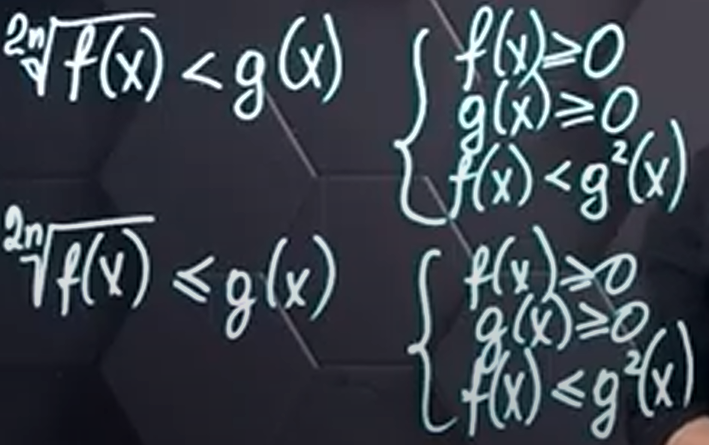 ²ⁿ√f(x) < g(x)
{ f(x) ≥ 0
g(x) ≥ 0
f(x) < g²(x)
²ⁿ√f(x) ≤ g(x)
{ f(x) ≥ 0
g(x) ≥ 0
f(x) ≤ g²(x)